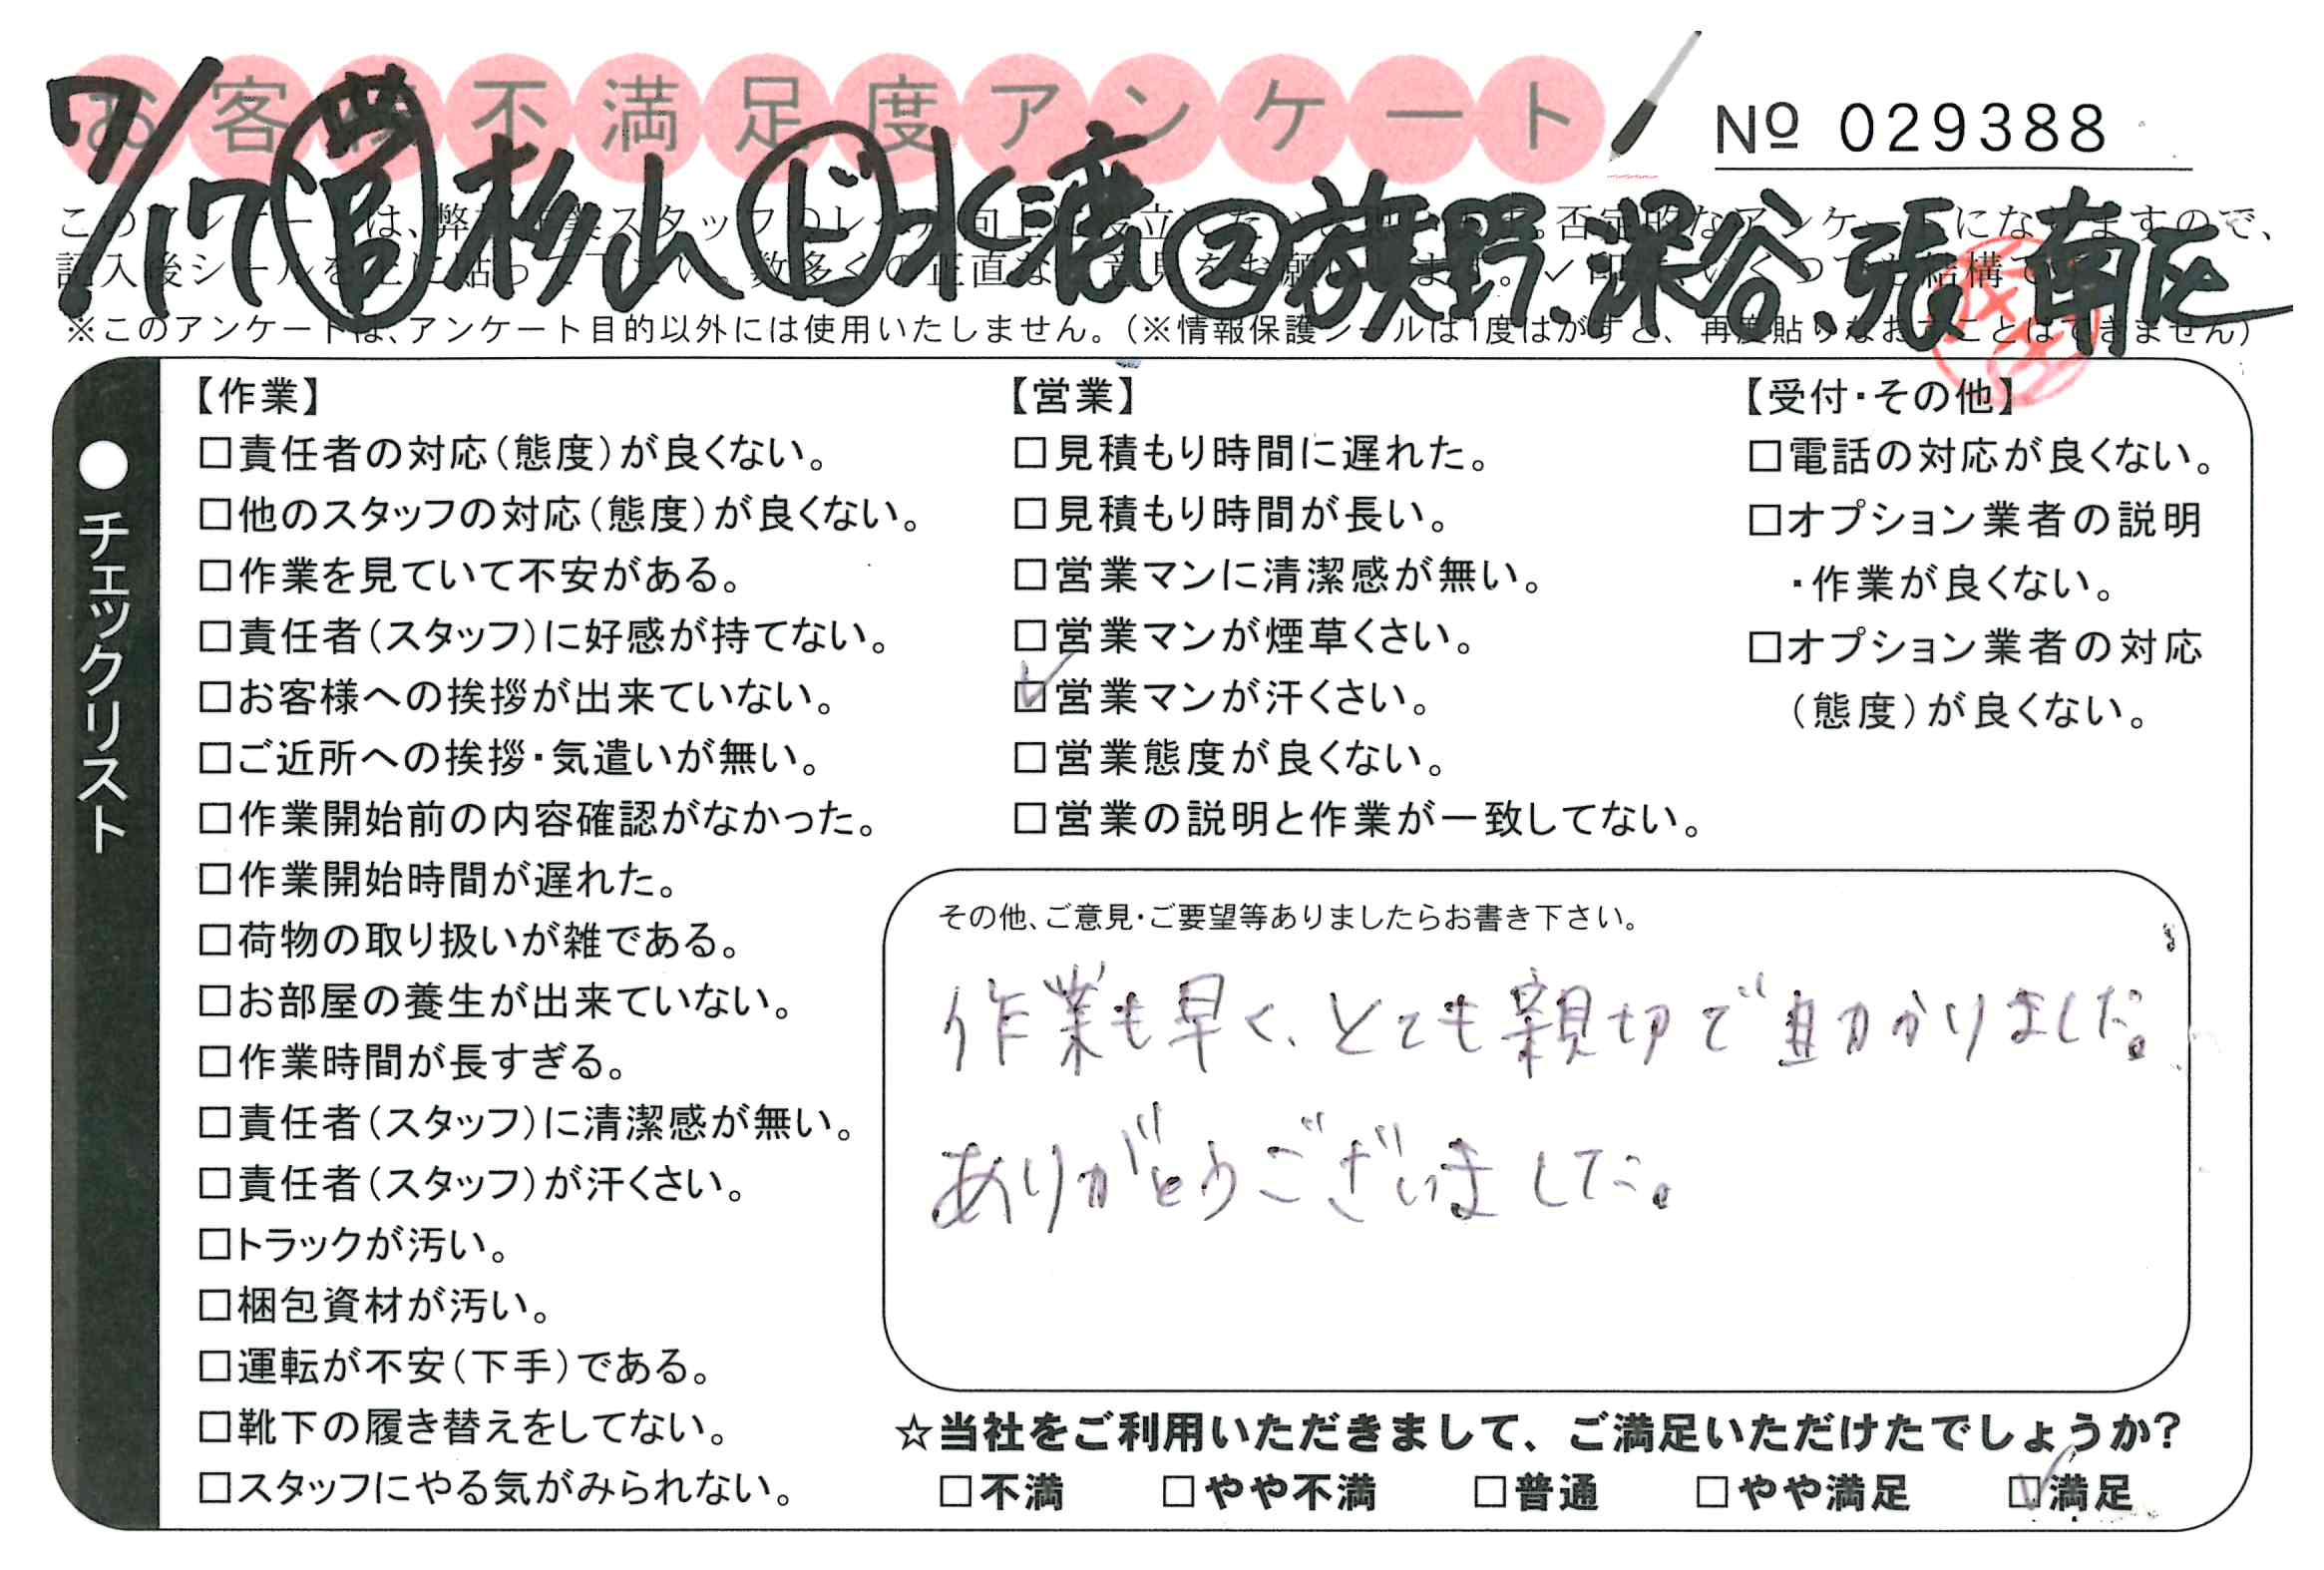 お客様不満足度アンケート
№ 029388
7/17 営 杉山 ド 水庫 ス 旗野、深谷、張 南区
※このアンケートは、アンケート目的以外には使用いたしません。（※情報保護シールは1度はがすと、再度貼りなおすことはできません）
●チェックリスト
【作業】
□責任者の対応（態度）が良くない。
□他のスタッフの対応（態度）が良くない。
□作業を見ていて不安がある。
□責任者（スタッフ）に好感が持てない。
□お客様への挨拶が出来ていない。
□ご近所への挨拶・気遣いが無い。
□作業開始前の内容確認がなかった。
□作業開始時間が遅れた。
□荷物の取り扱いが雑である。
□お部屋の養生が出来ていない。
□作業時間が長すぎる。
□責任者（スタッフ）に清潔感が無い。
□責任者（スタッフ）が汗くさい。
□トラックが汚い。
□梱包資材が汚い。
□運転が不安（下手）である。
□靴下の履き替えをしてない。
□スタッフにやる気がみられない。
【営業】
□見積もり時間に遅れた。
□見積もり時間が長い。
□営業マンに清潔感が無い。
□営業マンが煙草くさい。
☑営業マンが汗くさい。
□営業態度が良くない。
□営業の説明と作業が一致してない。
【受付・その他】
□電話の対応が良くない。
□オプション業者の説明
・作業が良くない。
□オプション業者の対応
（態度）が良くない。
その他、ご意見・ご要望等ありましたらお書き下さい。
作業も早く、とても親切で助かりました。
ありがとうございました。
☆当社をご利用いただきまして、ご満足いただけたでしょうか？
□不満 □やや不満 □普通 □やや満足 ☑満足